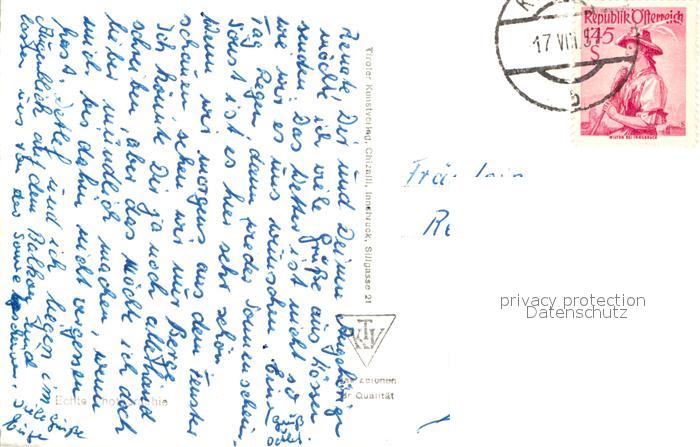 Renate Dir und Deinen Angehörigen
möchte ich viele Grüße aus Kössen
senden. Das Wetter ist nicht so
wie wir es uns wünschen. Einen
Tag Regen dann wieder Sonnenschein.
Sonst ist es hier sehr schön.
Wenn wir morgens aus dem Fenster
schauen sehen wir nur Berge.
Ich könnte Dir ja noch allerhand
schreiben, aber das möchte ich doch
lieber mündlich machen, wenn
mich bis dahin nicht vergessen
hast. Detlef und ich liegen im
Augenblick auf dem Balkon und
lassen uns von der Sonne bescheinen.
Viele Grüße
Tiroler Kunstverlag, Chizzali, Innsbruck, Sillgasse 21
Echte Photographie
Qualität
17 VIII
b
Republik Österreich
1.45
S
WILTEN BEI INNSBRUCK
Fräulein
Re
privacy protection
Datenschutz